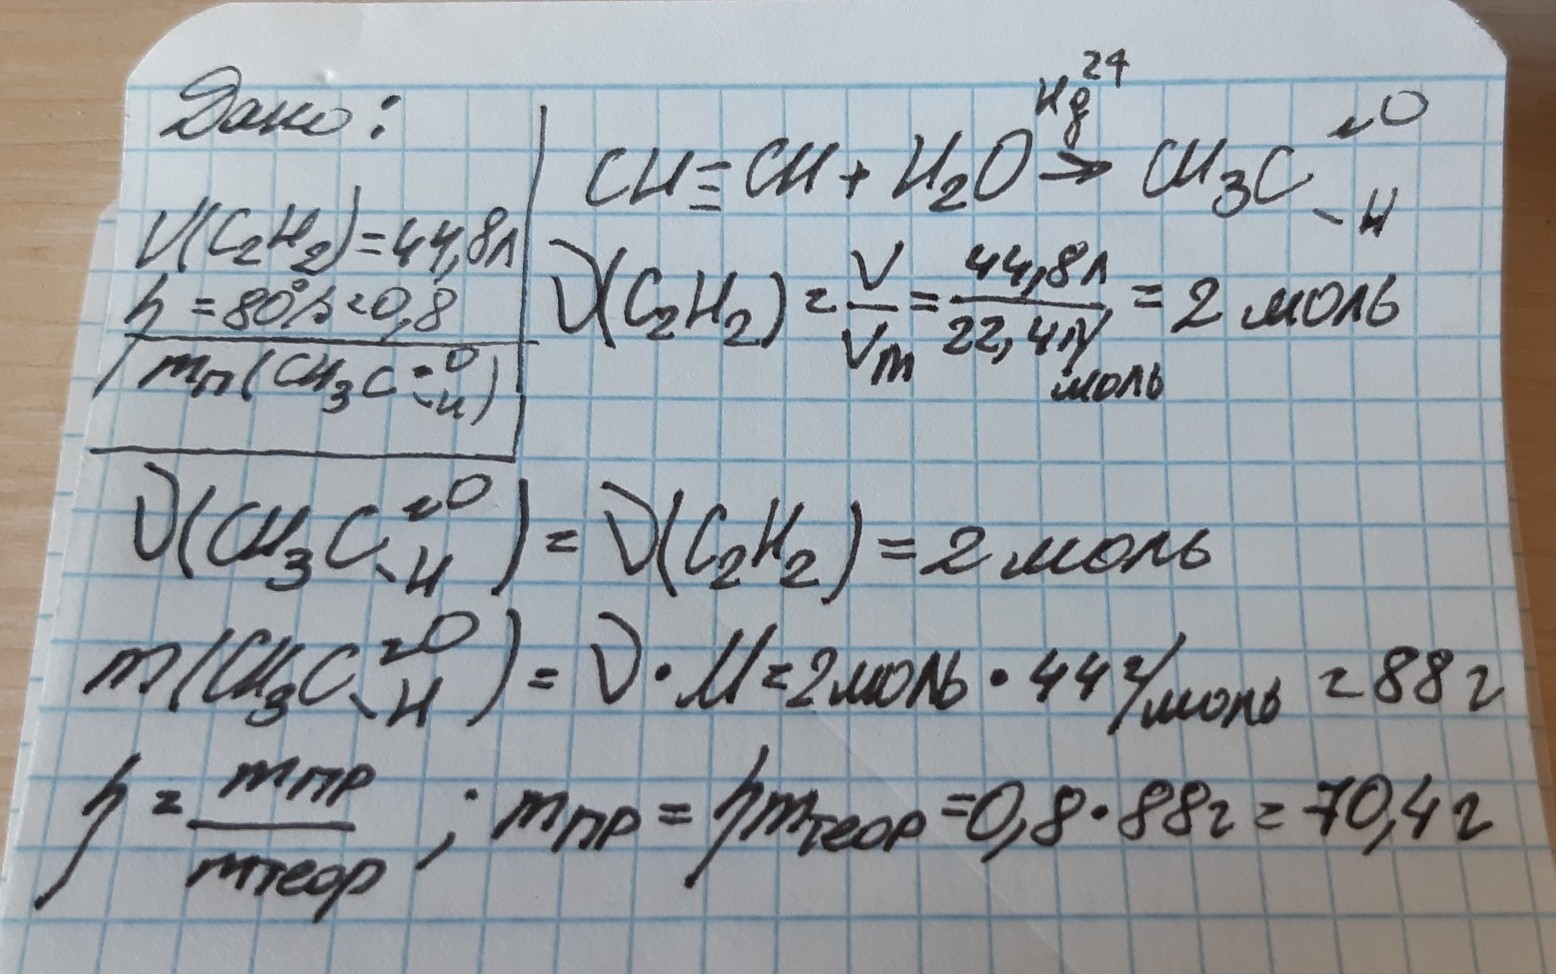 Дано:
V(C₂H₂)=44,8л
η = 80%=0,8
mп(CH₃C=O-H)
CH≡CH + H₂O Hg²⁺→ CH₃C=O-H
ν(C₂H₂) = V/Vm = 44,8л/22,4л/моль = 2 моль
ν(CH₃C=O-H) = ν(C₂H₂) = 2 моль
m(CH₃C=O-H) = ν·M=2моль·44г/моль = 88г
η = mпр/mтеор ; mпр = ηmтеор =0,8·88г = 70,4г